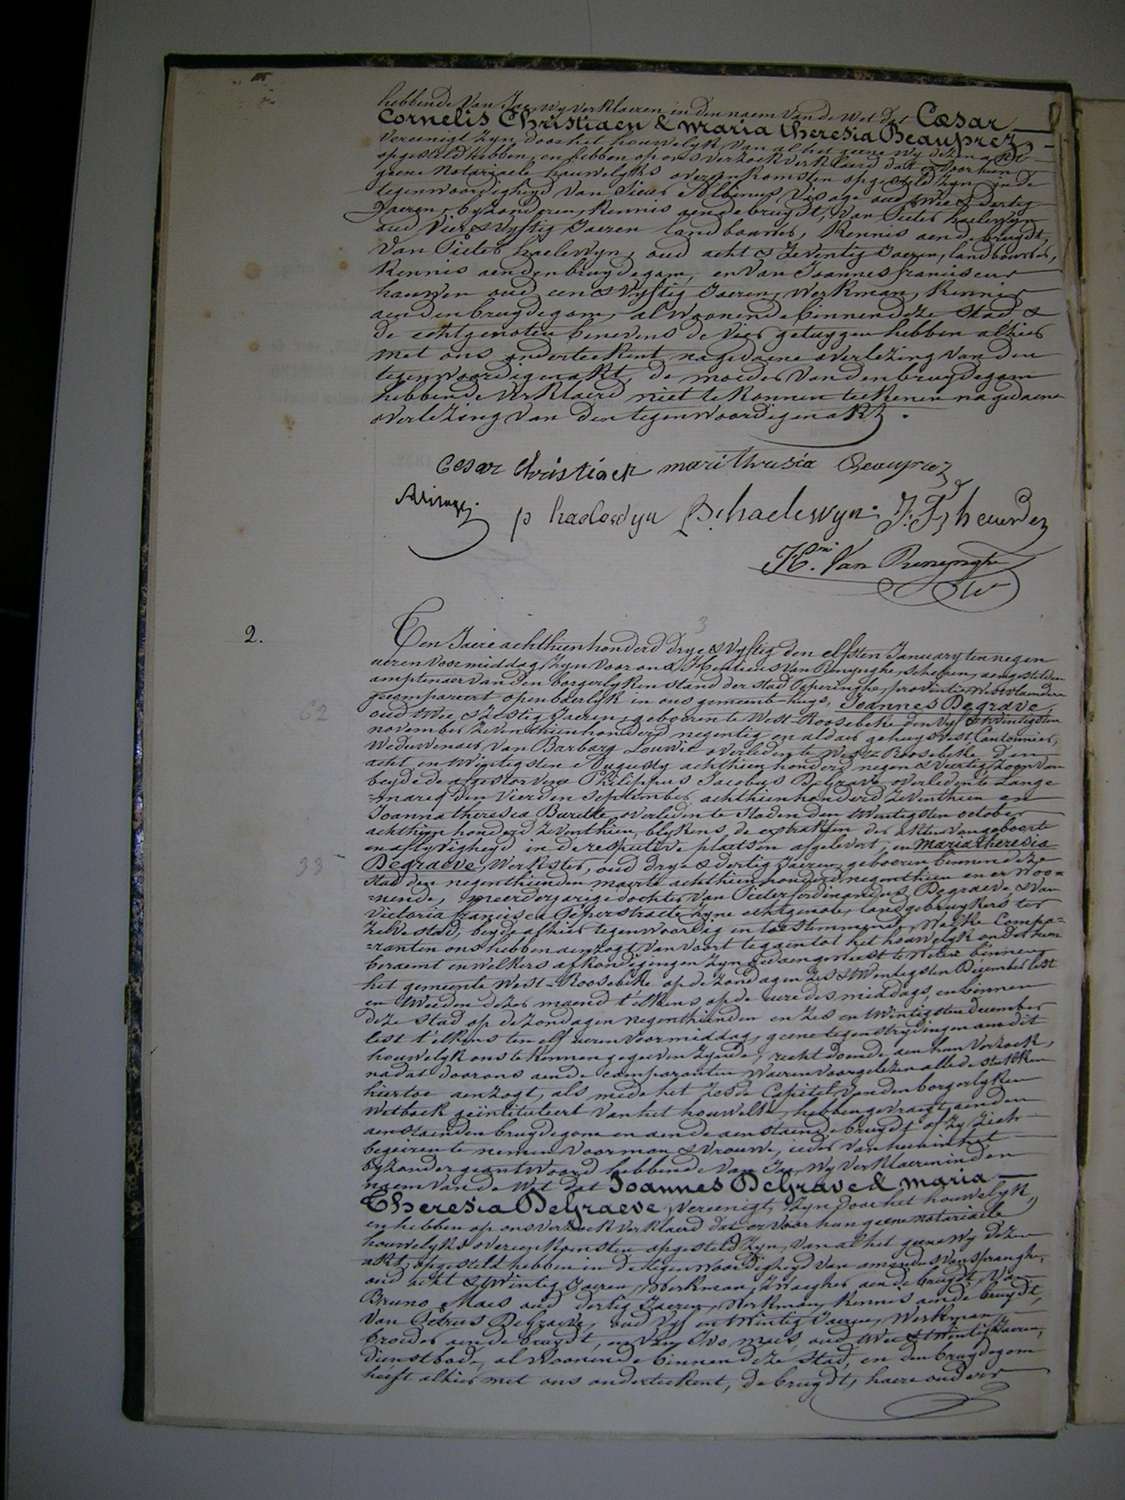 hebbende van Ja, wy verklaeren in den naem van de Wet dat Cæsar
Cornelis Christiaen & Maria Theresia Beauprez,
vereenigt zyn door het houwelyk van al het geene wy dezen akt
opgesteld hebben, en hebben op ons verzoek verklaerd dat er voor hun
geene notariaele houwelyks overeenkomsten opgesteld zyn, in de
tegenwoordigheyd van Sieur Albinus Visage oud twee & dertig
Jaeren, byzonderen, kennis aen de bruydt, van Pieter haelewyn
oud vier & vyftig Jaeren landbouwer, kennis aen de bruydt,
van Pieter haelewyn, oud acht & zeventig Jaeren, landbouwer,
kennis aen den bruydegom, en van Joannes franciscus
heuwen oud een & vyftig Jaeren, werkman, kennis
aen den bruydegom, al woonende binnen deze stad &
de echtgenoten benevens de vier getuygen hebben alhier
met ons onderteekent na gedaene overlezing van den
tegenwoordigen akt, de moeder van den bruydegom
hebbende verklaerd niet te konnen teekenen na gedaene
overlezing van den tegenwoordigen akt.
Cesar Christiaen mari theresia Beauprez
AVisage. p haelewyn P. haelewyn. J. F.
H.ri Van Renynghe
2.
3
Ten Jaere achthienhonderd drye & vyftig den elfsten January ten negen
ueren voormiddag, zyn voor ons Henricus Van Renynghe, schepen, aengestelden
amptenaer van den borgerlyken stand der stad Poperinghe, provintie Westvlaenderen
gecompareert openbaerlyk in ons gemeente-huys, Joannes Degrave,
oud twee & zestig Jaeren, geboren te West-Roosebeke den vyf & twintigsten
62
november zeventhienhonderd negentig en aldaer gehuysvest, Cantonnier,
Weduwenaer van Barbara Louwie overleden te West-Roosebeke den
acht en twintigsten Augusty achthien honderd negen & veertig, zoon van
beyde de afgestorvene Philippus Jacobus Degrave, overleden te Lange
-marcq den vierden september achthienhonderd zeventhien en
Joanna theresia Barelle overleden te Staden den twintigsten october
achthien honderd zeventhien, blykens de extrakten der akten van geboorte
en aflyvigheyd in de respective plaetsen afgelevert, en Maria theresia
33
Degraeve, Werkster, oud drye & dertig Jaeren, geboren binnen deze
stad den negenthienden maerte achthienhonderd negenthien en er woo-
-nende, meerderjarige dochter van Pieter ferdinandus Degraeve & van
Victoria francisca zyne echtgenote, landgebruykers ter
zelve stad, beyde alhier tegenwoordig en toestemmende, Welke Compa-
-ranten ons hebben aenzogt van voort te gaen tot het houwelyk onder hun
beraemt en welkers afkondigingen zyn gedaen geweest te weten binnen
het gemeente West-Roosebeke op de zondagen zes & twintigsten December lest
en tweeden dezer maend t'elkens op de uere des middags, en binnen
deze stad op de zondagen negenthienden en zes en twintigsten december
lest t'elkens ten elf ueren voormiddag, geene tegenstrydingen aen dit
houwelyk ons te kennen gegeven zynde, recht doende aen hun verzoek,
nadat door ons aen de comparanten waeren voorgelezen alle de stukken
hiertoe aenzogt, als mede het zesde Capitel van den borgerlyken
Wetboek geïntituleert van het houwelyk, hebben gevraegt aen den
aenstaenden bruydegom en aen de aenstaende bruydt of zy zich
begeiren te nemen voor man & vrouwe, ieder van hun in het
byzonder geantwoord hebbende van Ja, wy verklaeren in den
naem van de Wet dat Joannes Degrave & Maria
Theresia Degraeve, vereenigt zyn door het houwelyk,
en hebben op ons verzoek verklaerd dat er voor hun geene notariaele
houwelyks overeenkomsten opgesteld zyn, van al het geene wy dezen
akt opgesteld hebben in de tegenwoordigheyd van amandus Van Spranghe,
oud acht & twintig Jaeren, Werkman, zwaegher aen de bruydt, Van
Bruno Maes oud dertig Jaeren, Werkman, kennis aen de bruydt,
van Petrus Degraeve, oud vyf en twintig Jaeren, Werkman,
broeder aen de bruydt, en van Ivo maes, oud twee & twintig Jaeren,
dienstbode, al woonende binnen deze stad, en den bruydegom
heeft alhier met ons onderteekent, de bruydt, haere ouders